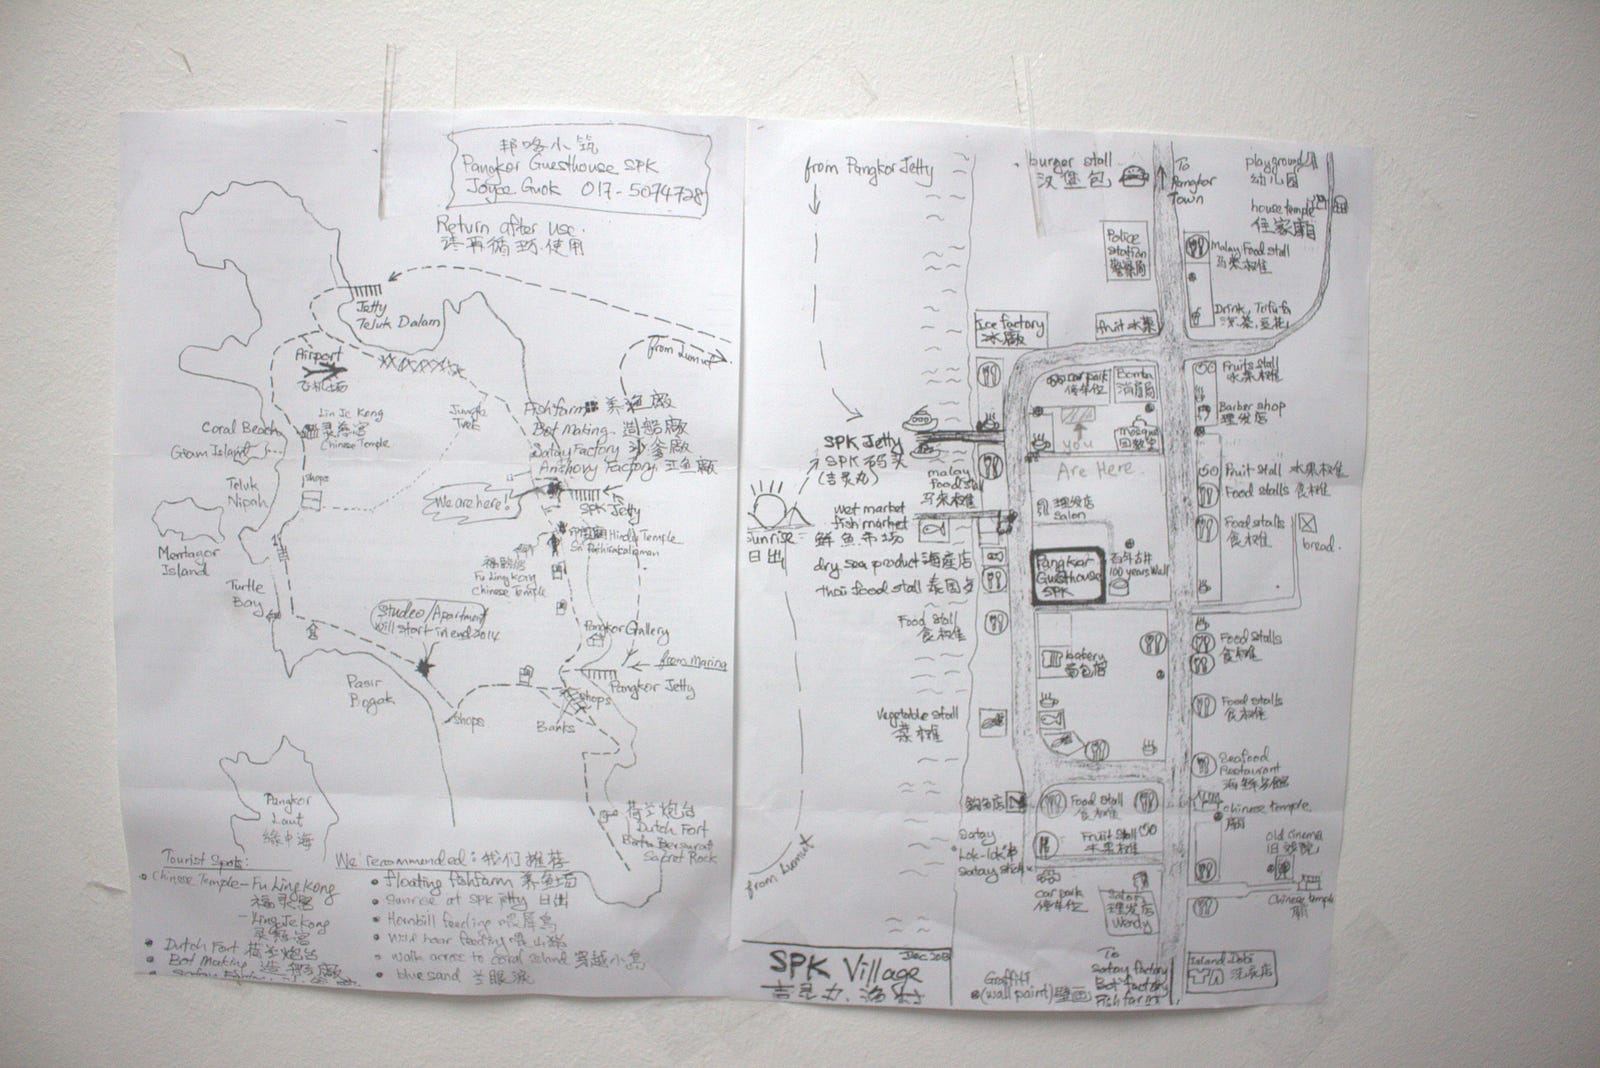 邦咯小筑
Pangkor Guesthouse SPK
Joyce Guok 017-5074728
Return after use.
请再循环使用
Jetty
Teluk Dalam
from Lumut
Airport
飞机场
Lin Je Kong
灵慈宫
Chinese Temple
Jungle
Trek
Coral Beach
Giam Island
Teluk
Nipah
shops
Mentagor
Island
Turtle
Bay
Fishfarm 养渔廠
Bot Making 造船廠
Satay Factory 沙爹廠
Anchovy Factory 江鱼廠
We are here!
SPK Jetty
Hindu Temple
福灵宫
Fu Ling Kong
Chinese Temple
Studeo/Apartment
will start in end 2014
Pangkor Gallery
from Marina
Pangkor Jetty
shops
Banks
shops
Pasir
Bogak
Pangkor
Laut
绿中海
荷兰炮台
Dutch Fort
Batu Bersurat
Sacret Rock
Tourist Spots:
Chinese Temple - Fu Ling Kong
福灵宫
- Ling Je Kong
灵慈宫
Dutch Fort 荷兰炮台
Bot Making 造船廠
We recommended: 我们推荐
floating fishfarm 养鱼场
Sunrise at SPK jetty 日出
Hornbill feeding 喂犀鸟
Wild boar feeding 喂山猪
walk across to coral island 穿越小島
blue sand 兰眼淚
from Pangkor Jetty
SPK Jetty
SPK 码头
(吉灵丸)
Sunrise
日出
from Lumut
burger stall
汉堡包
To
Pangkor
Town
playground
幼儿园
house temple
住家庙
Police
Station
警察局
Malay Food stall
马来摊
Ice factory
冰廠
fruit 水菓
Drink, Tofufa
凉茶,豆花
car park
停车位
Bomba
消防局
Fruits stall
水果摊
Barber shop
理发店
mosque
回教堂
You
Are Here
malay
food stall
马来摊
Fruit stall 水果摊
Food stalls 食摊
wet market
fish market
鲜鱼市场
理发店
Salon
Food stalls
食摊
bread.
dry sea product 海產店
thai food stall
Pangkor
Guesthouse
SPK
百年古井
100 years Well
Food stall
食摊
bakery
面包店
Food stalls
食摊
Vegetable stall
菜摊
Food stalls
食摊
Seafood
Restaurant
Food stall
食摊
Chinese temple
廟
Satay
Lok-lok
Satay stick
Fruit stall
水果摊
Old cinema
旧戏院
car park
停车位
Salon
理发店
Wendy
Chinese temple
廟
SPK Village
Dec 2013
Graffiti
(wall paint) 壁画
To
Satay factory
Bot factory
Fish farm
Island Dobi
洗衣店